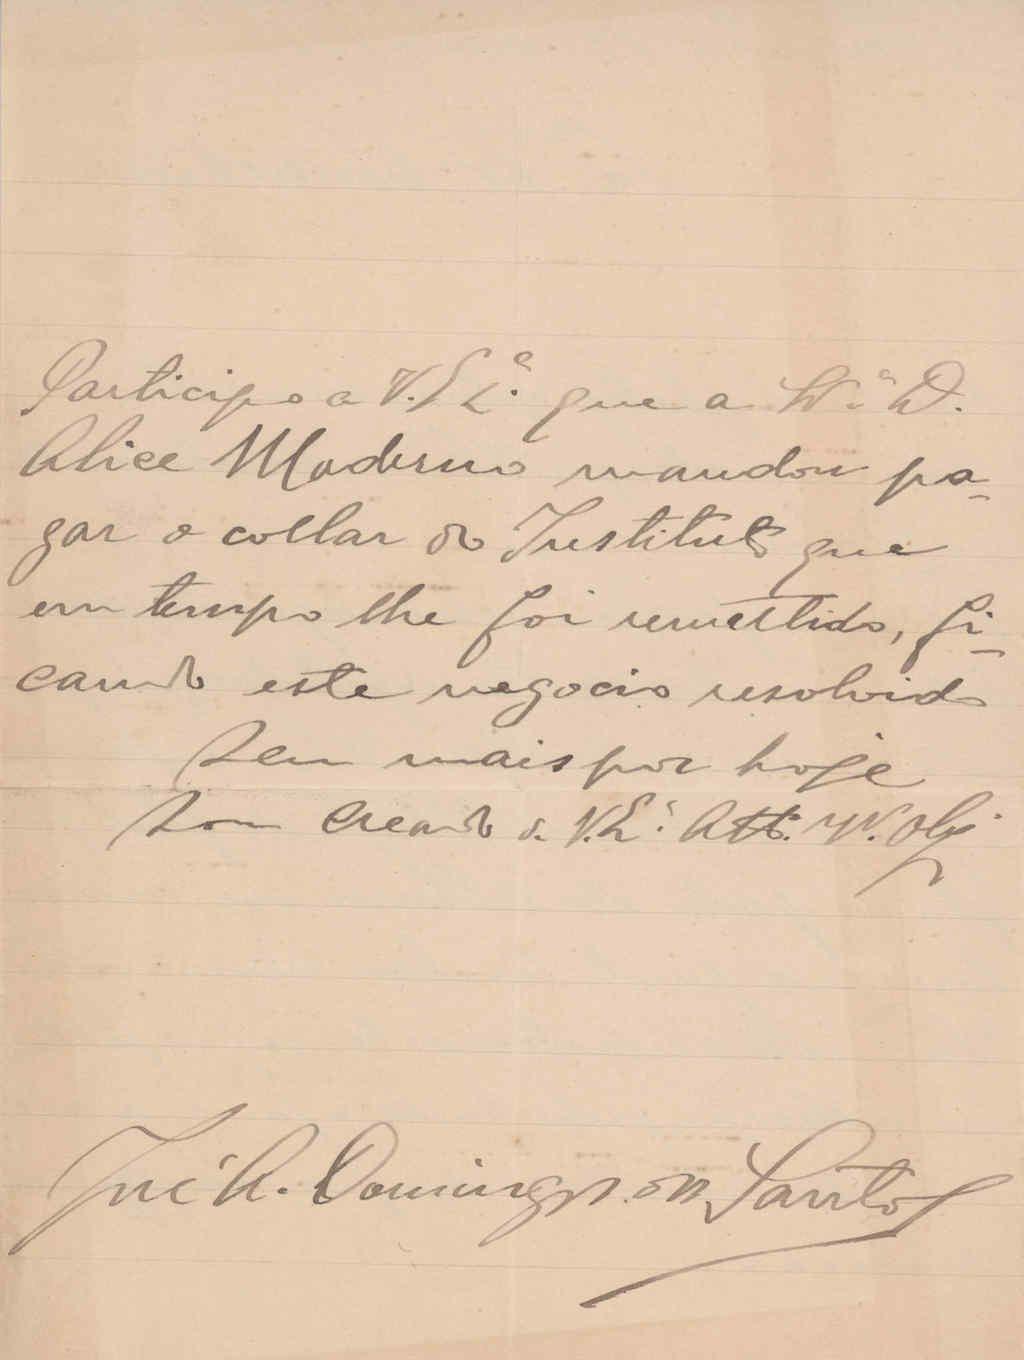 Participo a V. Exª. que a Srª. D.
Alice Moderno mandou pa-
gar o collar do Instituto que
em tempo lhe foi remettido, fi-
cando este negocio resolvido
Sem mais por hoje
Sou Creado de V. Exª. Attº. Vº. Obgº
José A. Domingos dos Santos